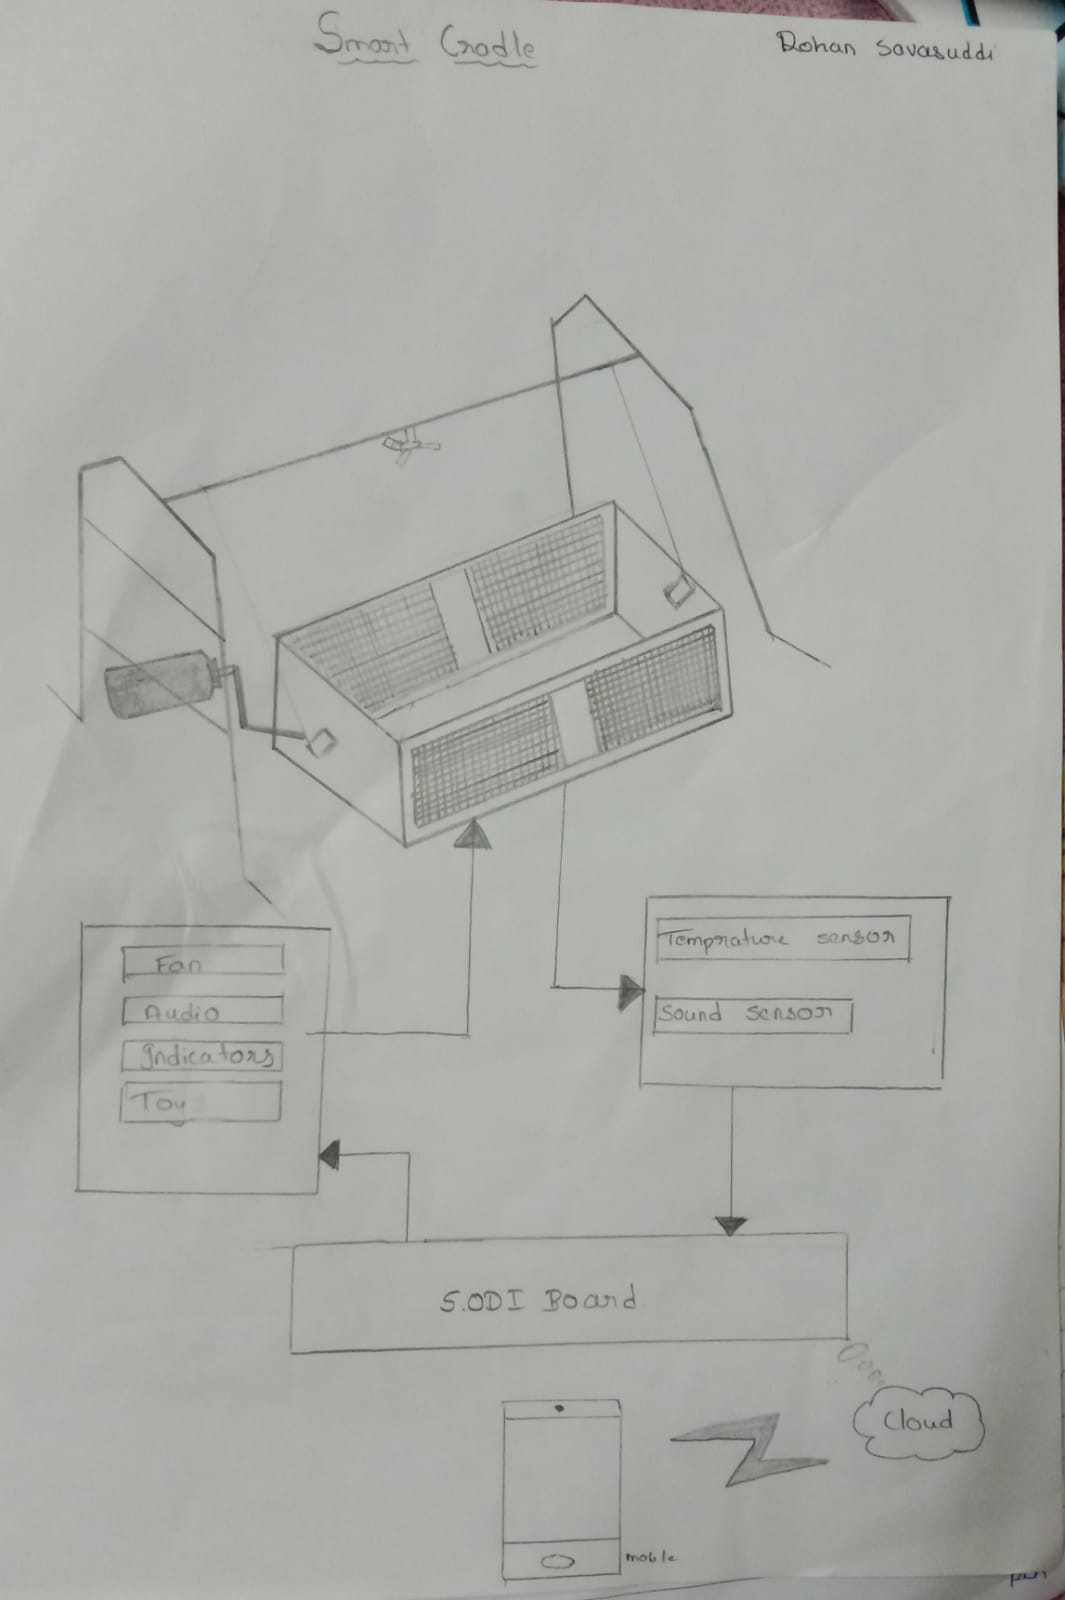 Smart Cradle
Rohan Savasuddi
Fan
Audio
Indicators
Toy
Temprature sensor
Sound sensor
S.ODI Board
Cloud
mobile